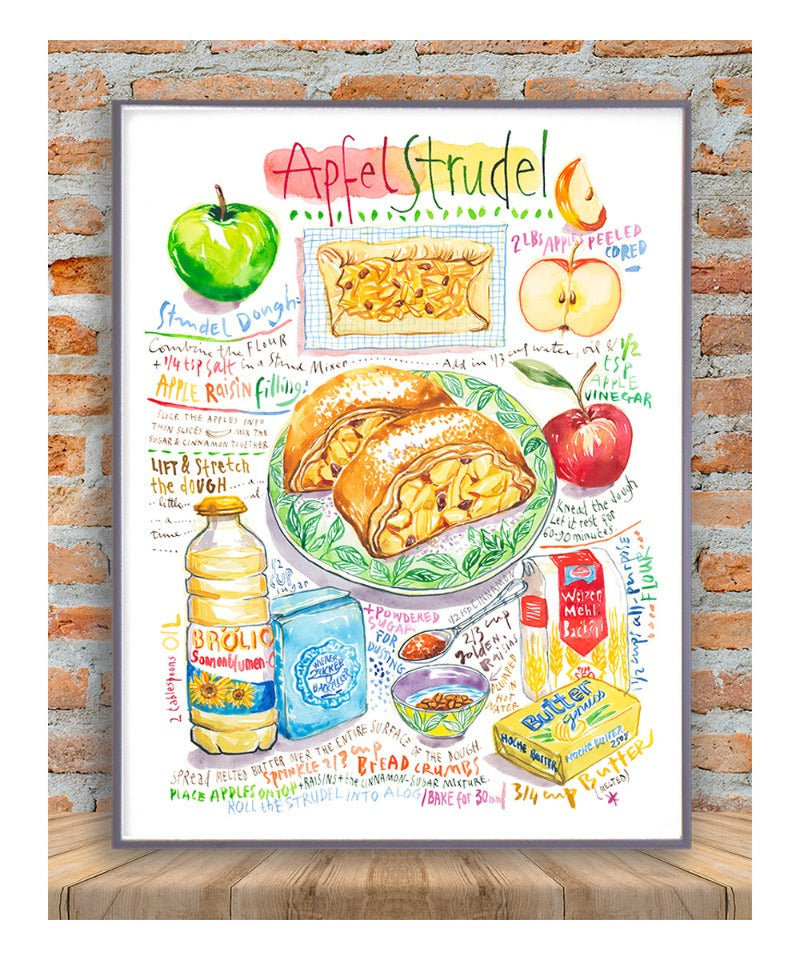 ApfelStrudel
2 LBS APPLES PEELED
CORED
Strudel Dough:
Combine the FLOUR
+ 1/4 tsp Salt in a Stand Mixer ........ Add in 1/3 cup water, oil & 1/2
tsp
APPLE
VINEGAR
APPLE RAISIN filling:
SLICE THE APPLES INTO
THIN SLICES MIX THE
SUGAR & CINNAMON TOGETHER
LIFT & Stretch
the dough....a...
little... at
..a..
time...
Knead the dough
Let it rest for
60-90 minutes
1/2 CUP sugar
+ POWDERED
SUGAR
FOR
DUSTING
1/2 tsp CINNAMON
2/3 cup
golden
RAISINS
PLUMPED
IN HOT
WATER
1 1/2 cups all-purpose
FLOUR
Weizen
Mehl
2 tablespoons OIL
BRÖLIO
Sonnenblumen-
WIENER
ZUCKER
Butter
genuss
HOCHE BUTTER
HOCHE BUTTER
250g
SPREAD MELTED BUTTER OVER THE ENTIRE SURFACE OF THE DOUGH.
SPRINKLE 2/3 cup BREAD CRUMBS
PLACE APPLES ON TOP + RAISINS + the CINNAMON-SUGAR MIXTURE
ROLL the STRUDEL INTO A LOG / BAKE for 30
3/4 cup Butter
(MELTED)